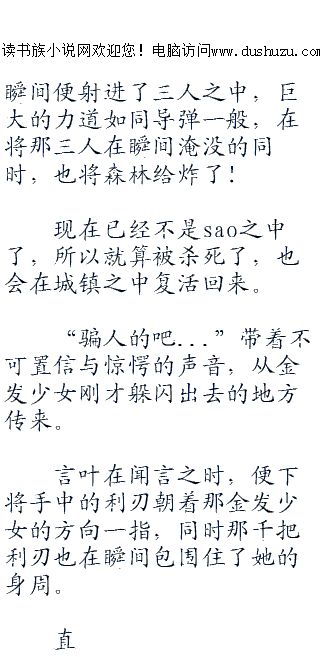 读书族小说网欢迎您！电脑访问www.dushuzu.com
瞬间便射进了三人之中，巨
大的力道如同导弹一般，在
将那三人在瞬间淹没的同
时，也将森林给炸了！
现在已经不是sao之中
了，所以就算被杀死了，也
会在城镇之中复活回来。
“骗人的吧...”带着不
可置信与惊愕的声音，从金
发少女刚才躲闪出去的地方
传来。
言叶在闻言之时，便下
将手中的利刃朝着那金发少
女的方向一指，同时那千把
利刃也在瞬间包围住了她的
身周。
直